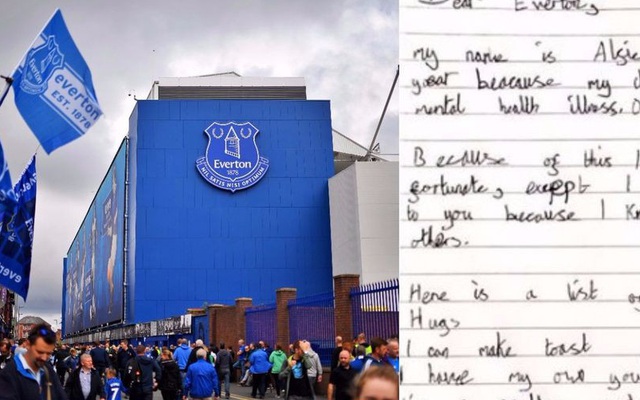 everton
EST. 1878
Everton
1878
NIL SATIS NISI OPTIMUM
7
Dear Everton,
my name is
year beacause my
mental health illness.
Because of this I
fortunate, except I
to you because I
others.
Here is a list
Hugs
I can make toast
I have my own